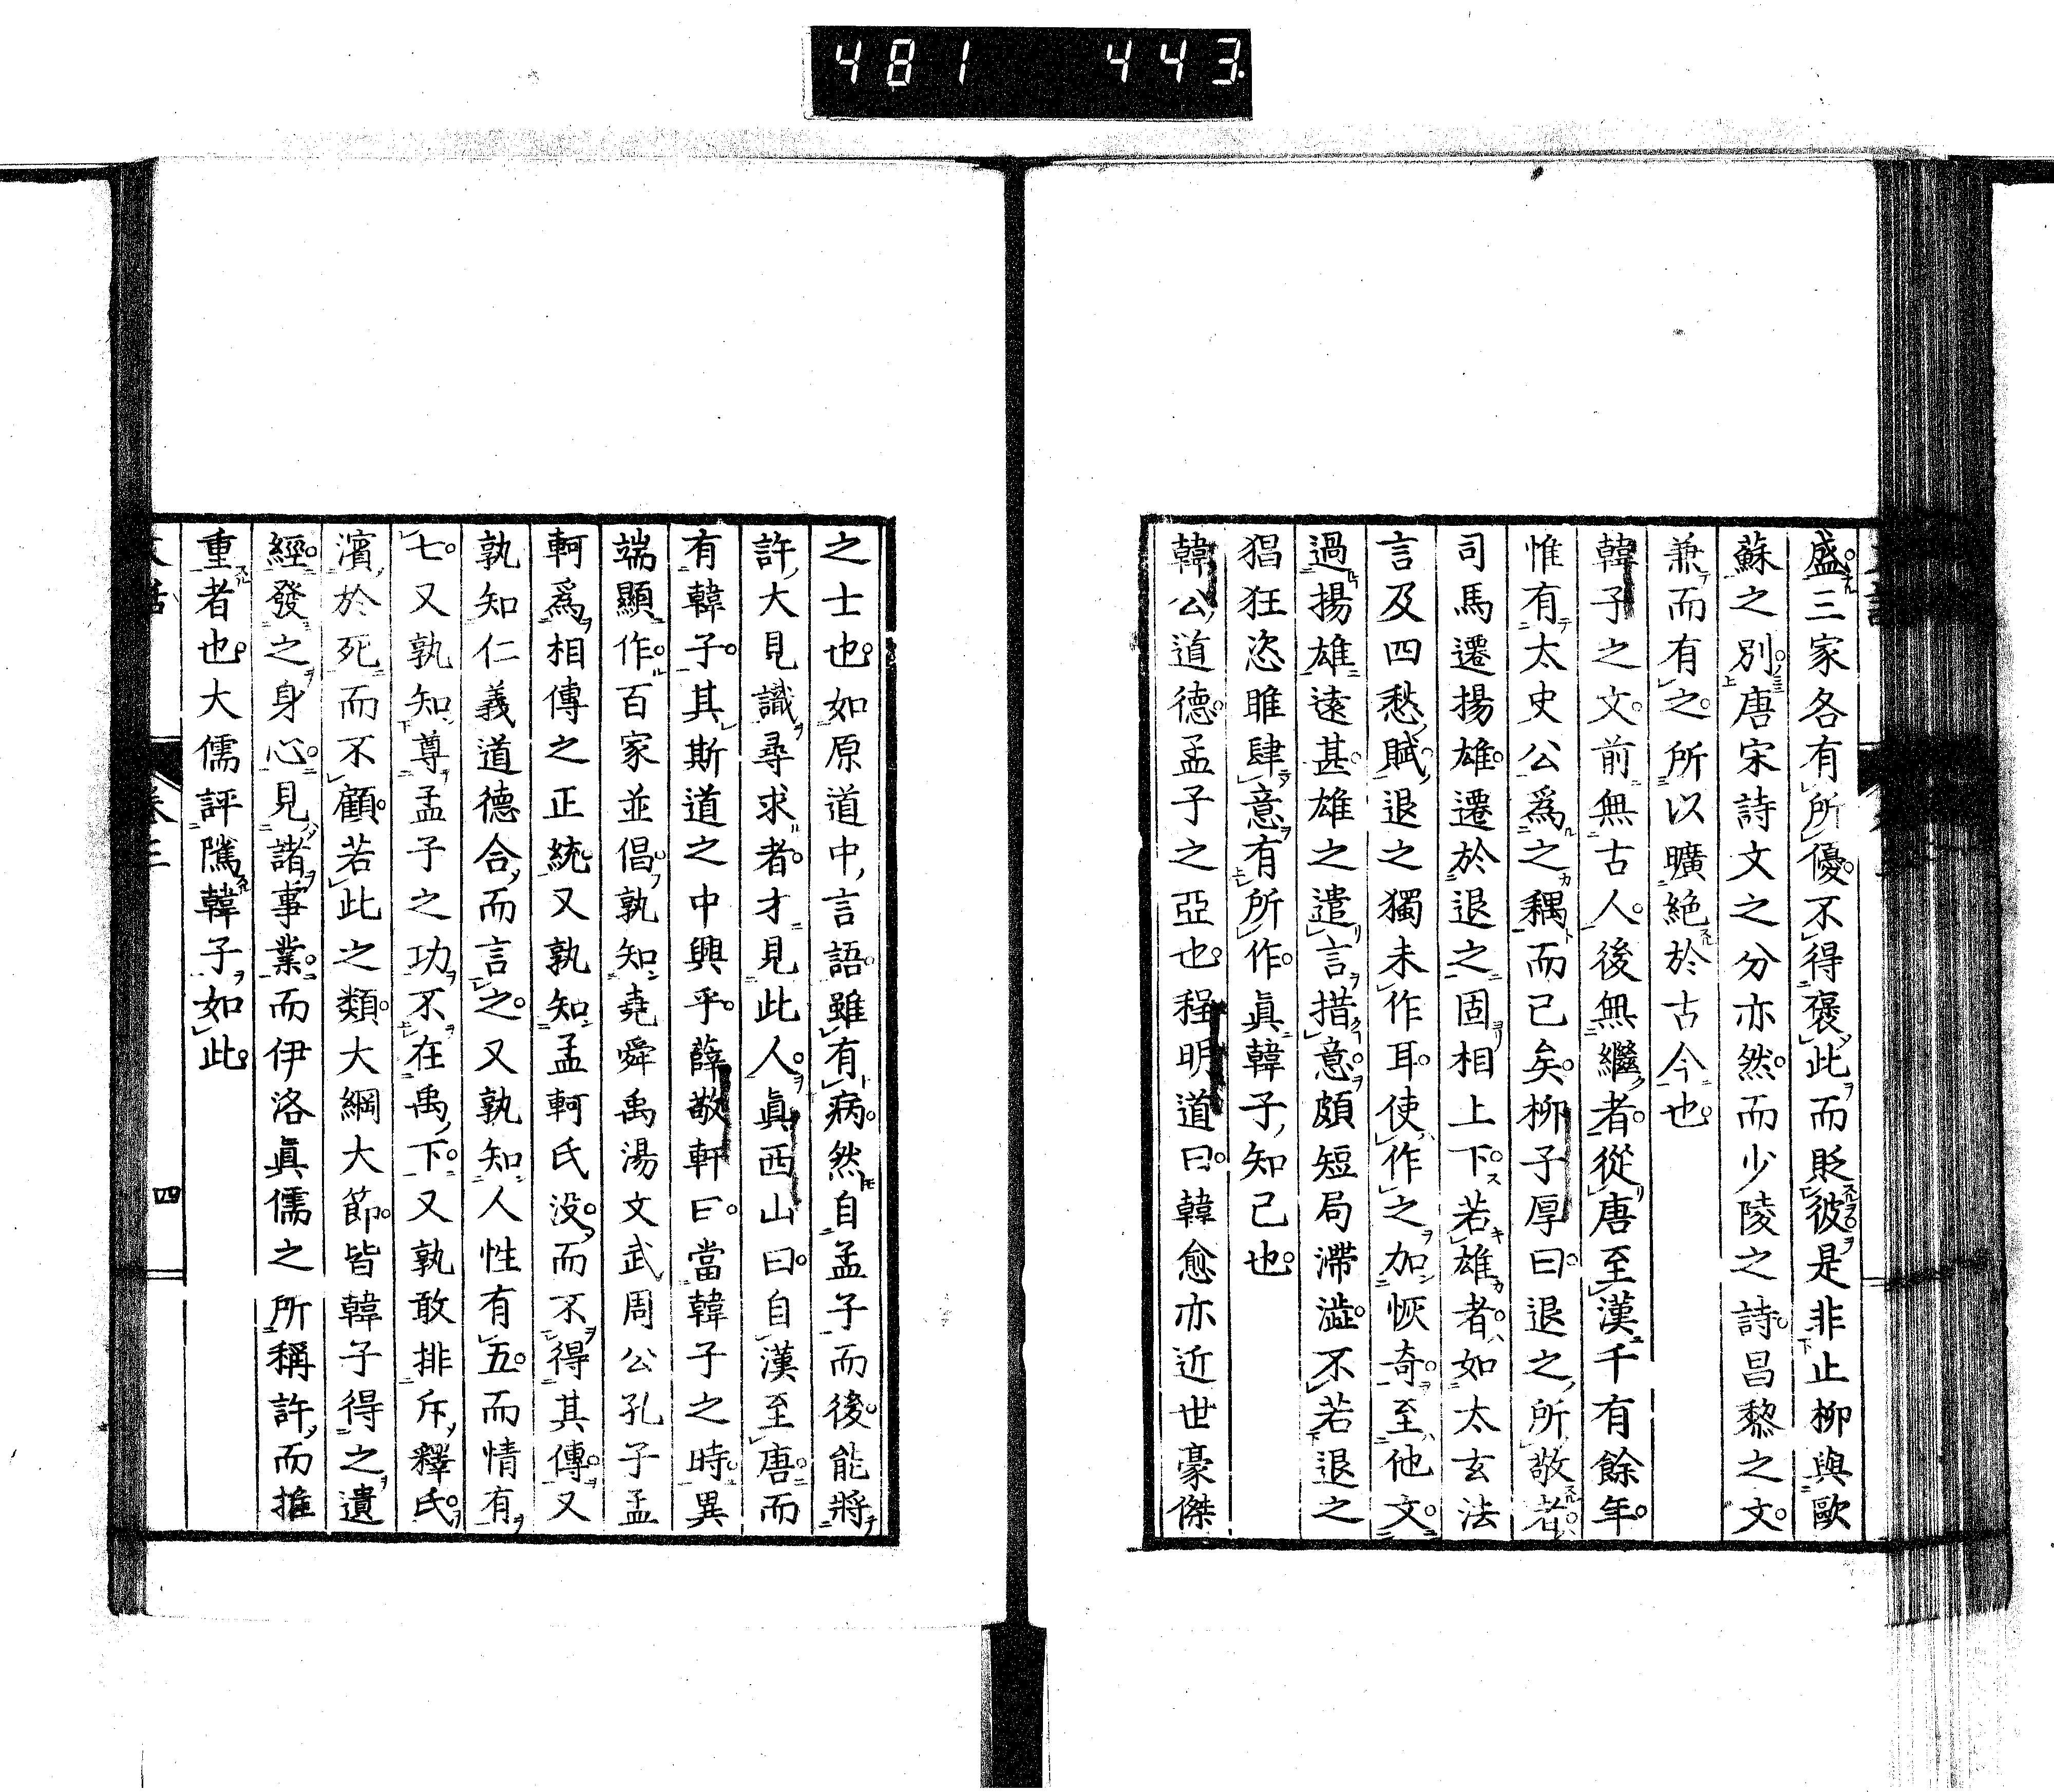 481 443
盛三家各有所優不得褒此而貶彼是非止柳與歐
蘇之別唐宋詩文之分亦然而少陵之詩昌黎之文
兼而有之所以曠絶於古今也
韓子之文前無古人後無繼者從唐至漢千有餘年
惟有太史公爲之耦而已矣柳子厚曰退之所敬者
司馬遷揚雄遷於退之固相上下若雄者如太玄法
言及四愁賦退之獨未作耳使作之加恢奇至他文
過揚雄遠甚雄之遣言措意頗短局滯澁不若退之
猖狂恣睢肆意有所作眞韓子知己也
韓公道德孟子之亞也程明道曰韓愈亦近世豪傑
之士也如原道中言語雖有病然自孟子而後能將
許大見識尋求者才見此人眞西山曰自漢至唐而
有韓子其斯道之中興乎薛敬軒曰當韓子之時異
端顯作百家並倡孰知堯舜禹湯文武周公孔子孟
軻爲相傳之正統又孰知孟軻氏没而不得其傳又
孰知仁義道德合而言之又孰知人性有五而情有
七又孰知尊孟子之功不在禹下又孰敢排斥釋氏
濱於死而不顧若此之類大綱大節皆韓子得之遺
經發之身心見諸事業而伊洛眞儒之所稱許而推
重者也大儒評隲韓子如此
卷三
四